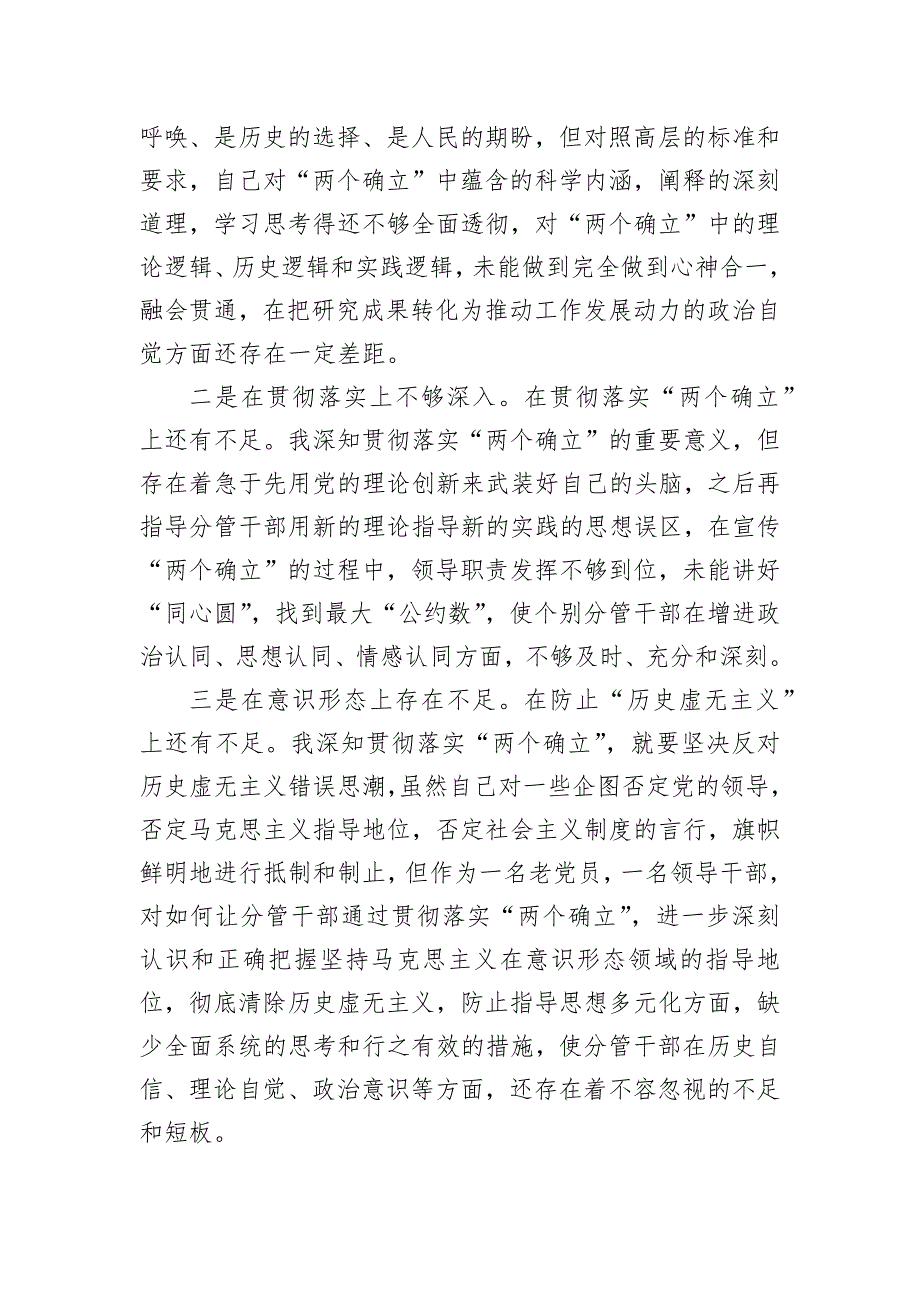 呼唤、是历史的选择、是人民的期盼，但对照高层的标准和
要求，自己对“两个确立”中蕴含的科学内涵，阐释的深刻
道理，学习思考得还不够全面透彻，对“两个确立”中的理
论逻辑、历史逻辑和实践逻辑，未能做到完全做到心神合一，
融会贯通，在把研究成果转化为推动工作发展动力的政治自
觉方面还存在一定差距。
二是在贯彻落实上不够深入。在贯彻落实“两个确立”
上还有不足。我深知贯彻落实“两个确立”的重要意义，但
存在着急于先用党的理论创新来武装好自己的头脑，之后再
指导分管干部用新的理论指导新的实践的思想误区，在宣传
“两个确立”的过程中，领导职责发挥不够到位，未能讲好
“同心圆”，找到最大“公约数”，使个别分管干部在增进政
治认同、思想认同、情感认同方面，不够及时、充分和深刻。
三是在意识形态上存在不足。在防止“历史虚无主义”
上还有不足。我深知贯彻落实“两个确立”，就要坚决反对
历史虚无主义错误思潮，虽然自己对一些企图否定党的领导，
否定马克思主义指导地位，否定社会主义制度的言行，旗帜
鲜明地进行抵制和制止，但作为一名老党员，一名领导干部，
对如何让分管干部通过贯彻落实“两个确立”，进一步深刻
认识和正确把握坚持马克思主义在意识形态领域的指导地
位，彻底清除历史虚无主义，防止指导思想多元化方面，缺
少全面系统的思考和行之有效的措施，使分管干部在历史自
信、理论自觉、政治意识等方面，还存在着不容忽视的不足
和短板。